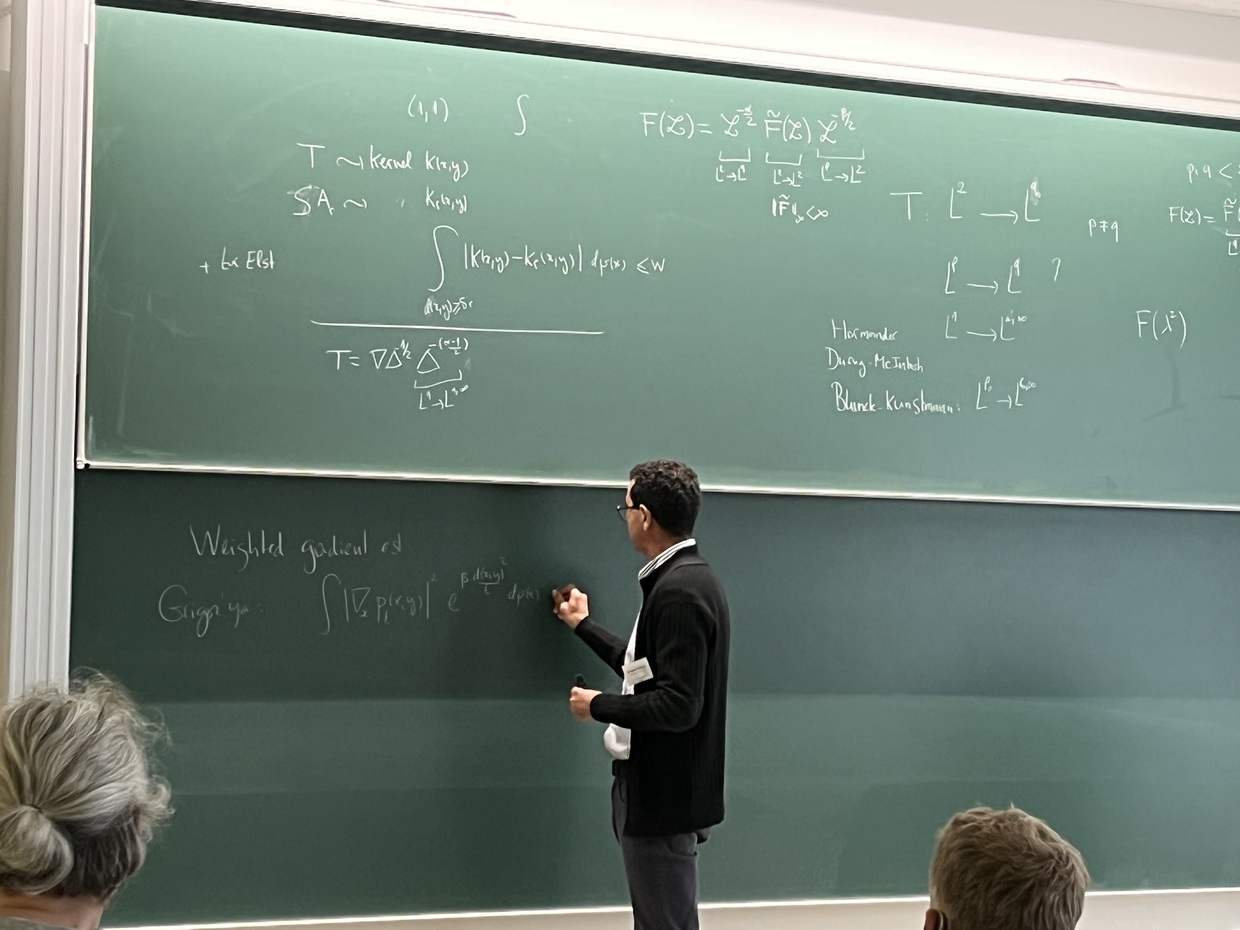 (1,1) ∫
T ~> kernel K(x,y)
SAᵣ ~> " Kᵣ(x,y)
+ ter Elst ∫_{d(x,y)≥δr} |K(x,y)-Kᵣ(x,y)| dμ(x) ≤ W
T = ∇Δ^{-1/2} Δ^{-(α-1/2)}
L¹→L^{q,∞}
F(ℒ) = ℒ^{-α/2} F̃(ℒ) ℒ^{-β/2}
L²→L^q L²→L² L^p→L²
‖F̃‖_∞ < ∞
T: L² → L^q
p≠q
L^p → L^q ?
Hörmander L¹ → L^{q,∞}
Duong-McIntosh
Blunck-Kunstmann: L^{p₀} → L^{q₀,∞}
p,q <
F(ℒ) = F̃
F(λ²)
Weighted gradient est
Grigor'yan: ∫ |∇ₓ pₜ(x,y)|² e^{β d(x,y)²/t} dμ(x)